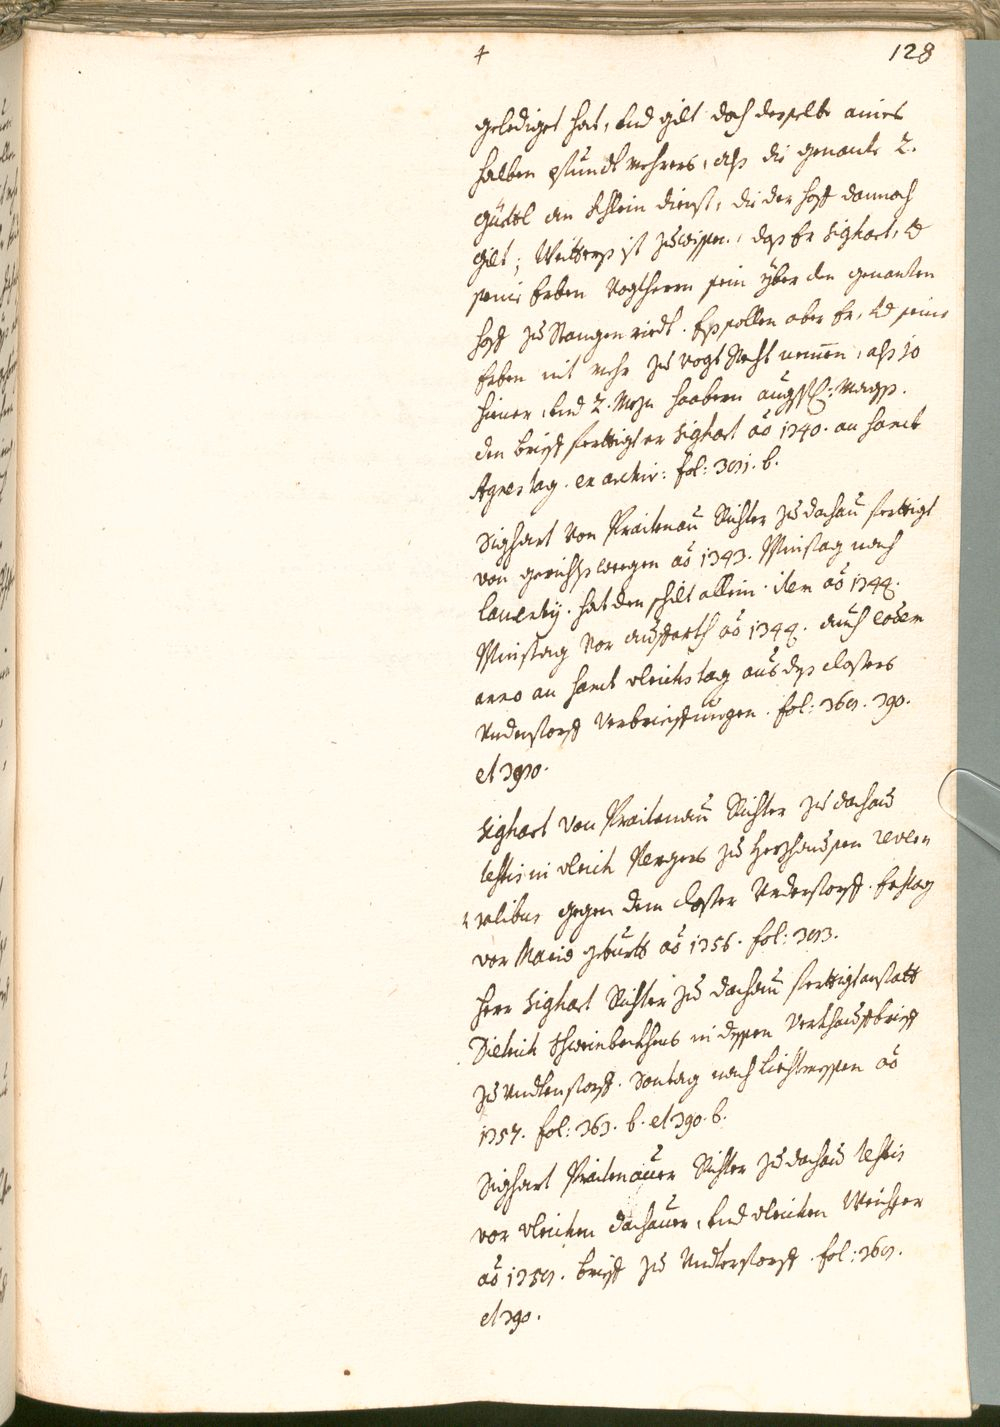 4
128
gelediget hat, und gilt doch desselbe aines
halben Pfundt mehrers, alß die genante 2.
Güettl an Khlein dienst, die der Hoff dannoch
gilt; Weitterß ist zuwissen, daß Er Sighart, und
seine Erben Vogtherrn sein yber den genanten
Hoff zu Stangenriedt. Eß sollen aber Er, und seine
Erben nit mehr zu Vogt Recht nemen, alß 10
hiener, und 2. Mezn haabern
den brieff ferttigt er Sighart ao 1340. an Sanct
Agnes tag. ex archiv: fol: 391. b.
Sighart von Praitenau Richter zu dachau ferttigt
von gerichts weegen ao 1343. Pfinstag nach
Laurentij. hat den schilt allein. item ao 1344.
Pfinstag vor auffarth ao 1344. auch eodem
anno an Sanct Ulrichs tag aus deß Closters
Understorff Verbrieffungen. fol: 369. 390.
et 390.
Sighart von Praitenau Richter zu dachau
testis in Ulrich
gegen dem Closter Understorff. Erstag
vor Mariæ geburth ao 1356. fol: 393.
Herr Sighart Richter zu dachau ferttigt anstatt
Dietrich Schweinbeckhens in dessen Verkhauffbrieff
zu Understorff. Sontag nach Liechtmessen ao
1357. fol: 363. b. et 390. b.
Sighart Praitenauer Richter zu dachau testis
vor Ulrichen dachauer, und Ulrichen Weichser
ao 1359. brieff zu Understorff. fol: 369.
et 390.